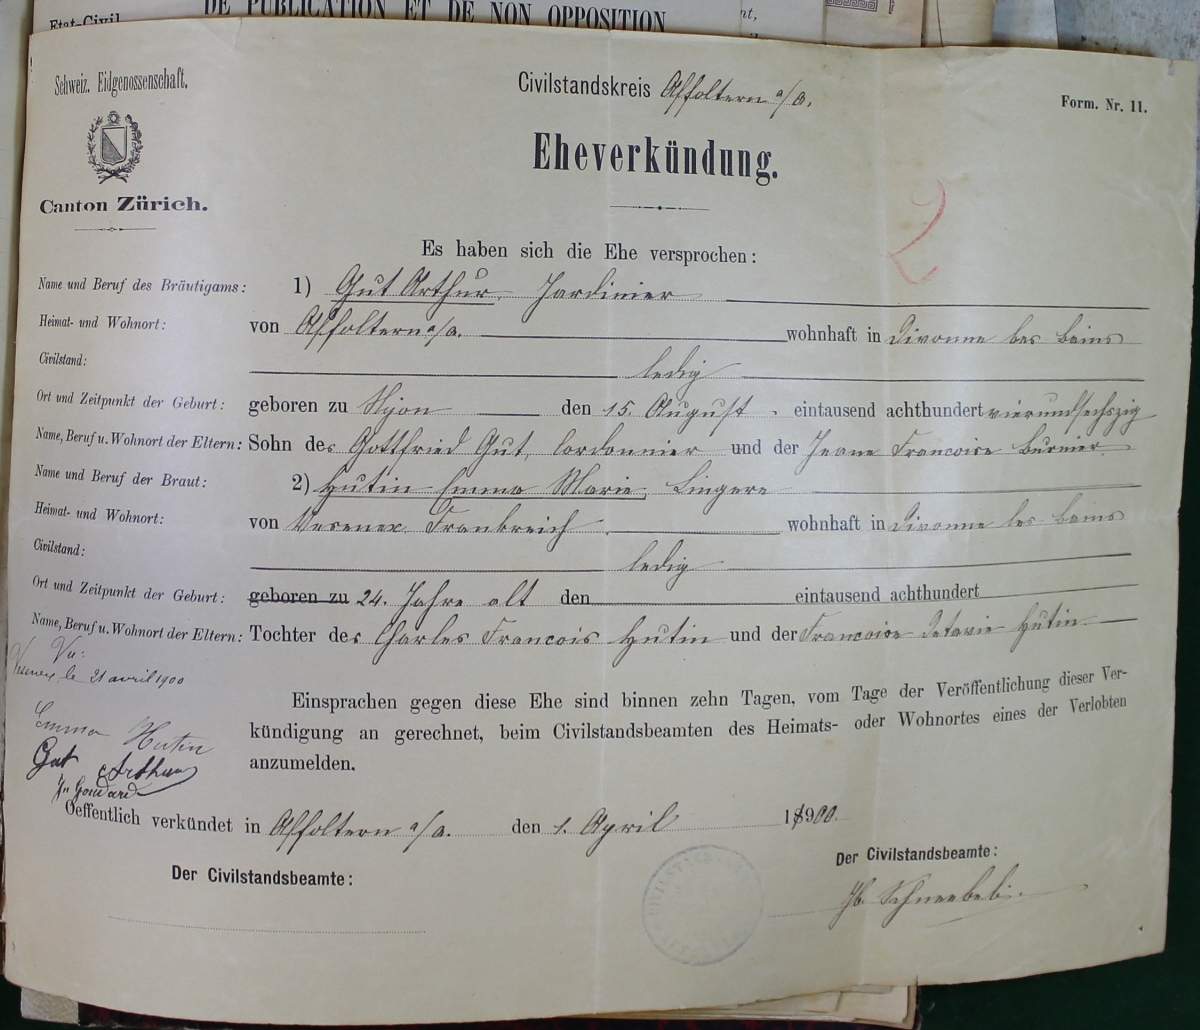 Etat-Civil
DE PUBLICATION ET DE NON OPPOSITION
Schweiz. Eidgenossenschaft.
Canton Zürich.
Civilstandskreis Affoltern a/A.
Form. Nr. 11.
Eheverkündung.
2
Es haben sich die Ehe versprochen:
Name und Beruf des Bräutigams: 1) Gut Arthur, Jardinier
Heimat- und Wohnort: von Affoltern a/A. wohnhaft in Divonne les bains
Civilstand: ledig
Ort und Zeitpunkt der Geburt: geboren zu Nyon den 15. August. eintausend achthundert vierundsechszig
Name, Beruf u. Wohnort der Eltern: Sohn des Gottfried Gut, Cordonnier und der Jeane Francoise Burnier
Name und Beruf der Braut: 2) Hutin Emma Marie, Lingere
Heimat- und Wohnort: von Vesenex Frankreich wohnhaft in Divonne les bains
Civilstand: ledig
Ort und Zeitpunkt der Geburt: geboren zu 24. Jahre alt den eintausend achthundert
Name, Beruf u. Wohnort der Eltern: Tochter des Charles Francois Hutin und der Francoise Hutin
Vu:
Vesenex le 21 avril 1900
Einsprachen gegen diese Ehe sind binnen zehn Tagen, vom Tage der Veröffentlichung dieser Ver-
kündigung an gerechnet, beim Civilstandsbeamten des Heimats- oder Wohnortes eines der Verlobten
anzumelden.
Emma Hutin
Gut Arthur
Oeffentlich verkündet in Affoltern a/A. den 1. April 1900.
Der Civilstandsbeamte:
Der Civilstandsbeamte:
Jb. Schneebeli.